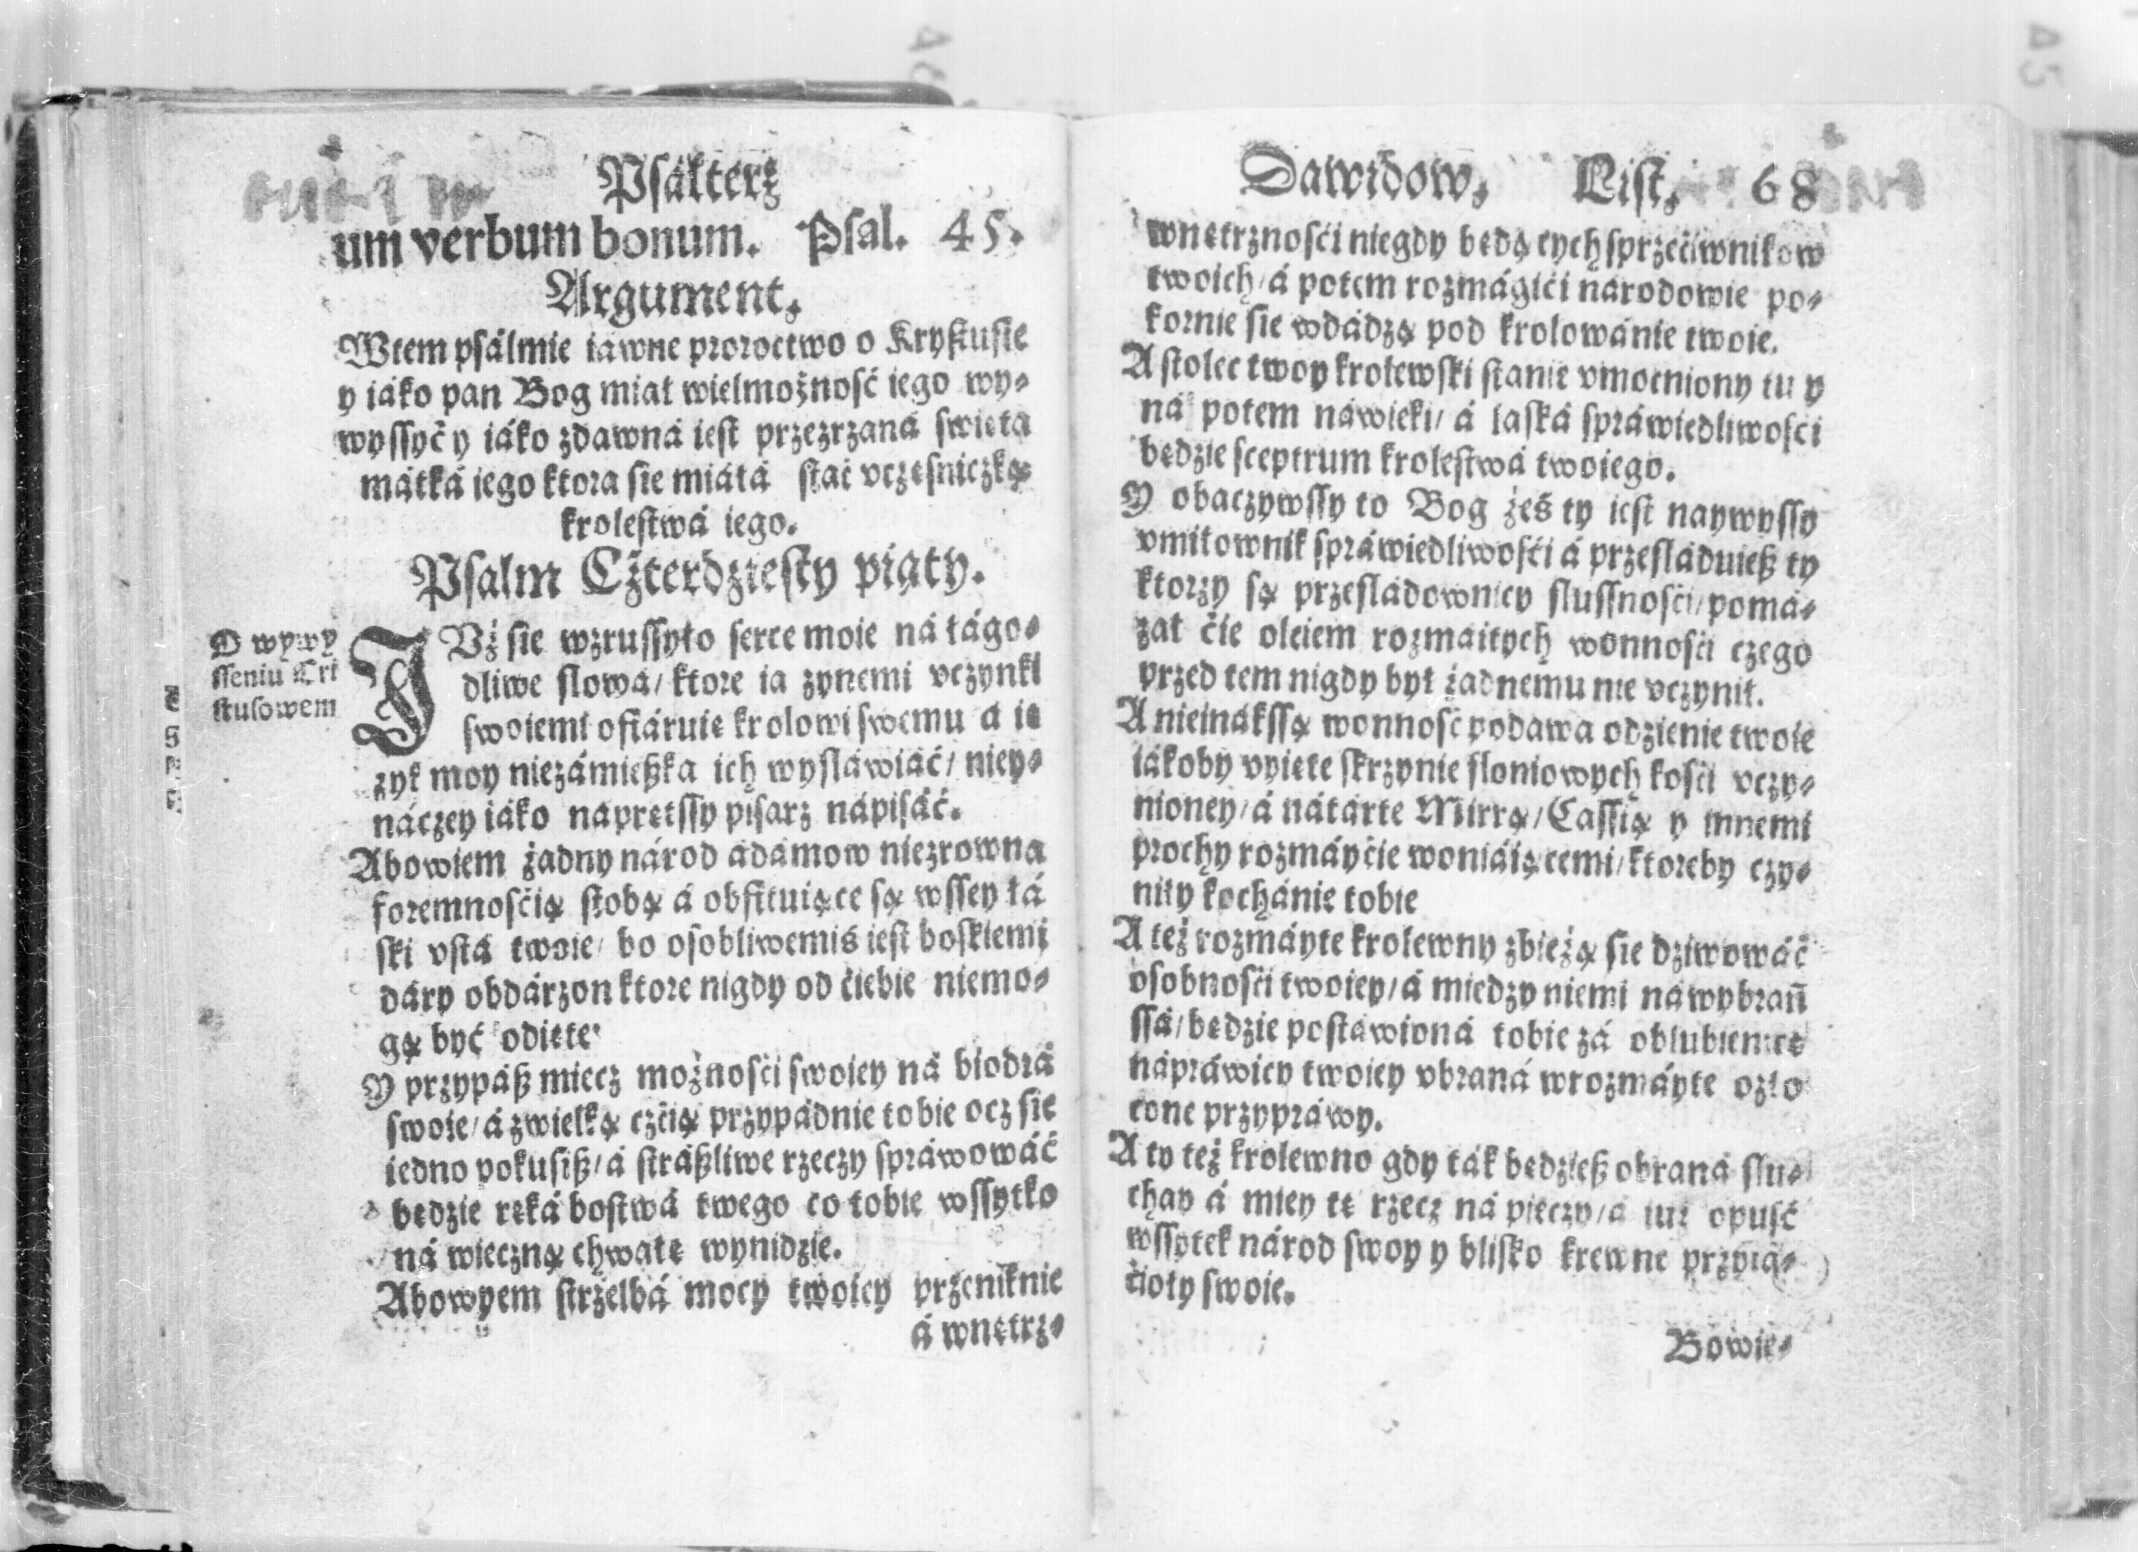 Psałterz
um verbum bonum. Psal. 45.
Argument.
Wtem psálmie iáwne proroctwo o Krystusie
y iáko pan Bog miał wielmożność iego wy-
wyssyć y iáko zdawná iest przezrzáná swięta
mátká iego ktora sie miáłá stać vczęsniczką
krolestwá iego.
Psalm Cżterdziesty piąty.
O wywy
sseniu Cri
stusowem
IVż sie wzrussyło serce moie ná łágo-
dliwe słowá/ ktore ia zynemi vczynki
swoiemi ofiáruię krolowi swemu á ię
zyk moy niezámießka ich wysláwiáć/ niey-
náczey iáko naprętssy pisarz nápisáć.
Abowiem żadny národ ádámow niezrowna
foremnośćią stobą á obfituiące są wssey łá
ski vstá twoie/ bo osobliwemiś iest boskiemi
dáry obdárzon ktore nigdy od ćiebie niemo-
gą być odięte
Y przypáß miecz możnośći swoiey ná biodrá
swoie/ á zwielką czćią przypádnie tobie ocz sie
iedno pokusiß/ á stráßliwe rzeczy spráwowáć
będzie ręká bostwá twego co tobie wssytko
ná wieczną chwałę wynidzie.
Abowyem strzelbá mocy twoiey przeniknie
á wnętrz-
Dawidow, List, 68
wnętrznośći niegdy będących sprzećiwnikow
twoich/ á potem rozmágići narodowie po-
kornie sie wdádzą pod krolowánie twoie.
A stolec twoy krolewski stanie vmocniony tu y
ná potem náwieki/ á laská spráwiedliwośći
będzie sceptrum krolestwá twoiego.
Y obaczywssy to Bog żeś ty iest naywyssy
vmiłownik spráwiedliwośći á przesláduieß ty
ktorzy są przesládownicy slussnośći/ pomá-
zał ćie oleiem rozmaitych wonnośći czego
przed tem nigdy był żadnemu nie vczynił.
A nieinákssą wonność podawa odzienie twoie
iákoby vyięte skrzynie sloniowych kośći vczy-
nioney/ á nátárte Mirrą/ Cassią y innemi
prochy rozmáyćie woniáiącemi/ ktoreby czy-
niły kochánie tobie
A też rozmáyte krolewny zbieżą sie dziwowáć
osobnośći twoiey/ á miedzy niemi nawybrań
ssá/ będzie postáwioná tobie zá oblubienicę
nápráwicy twoiey vbraná wrozmáyte ozło
cone przypráwy.
A ty też krolewno gdy ták będzieß obraná slu-
chay á miey tę rzecz ná pieczy/ á iuż opuść
wssytek národ swoy y blisko krewne przyia-
ćioły swoie.
Bowie-